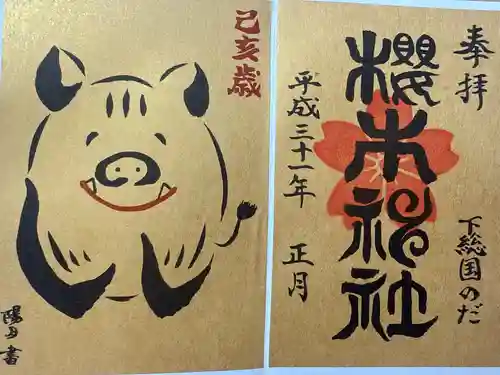 奉拝
下総国のだ
櫻木神社
平成三十一年 正月
己亥歳
陽丹 書